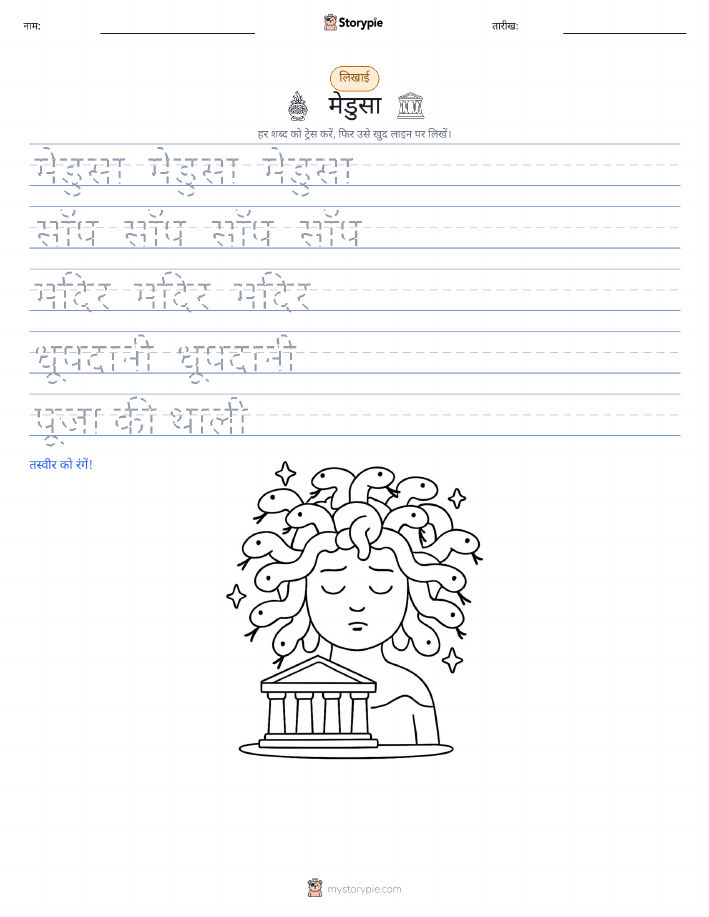 नाम: Storypie तारीख:
लिखाई
मेडुसा
हर शब्द को ट्रेस करें, फिर उसे खुद लाइन पर लिखें।
मेडुसा मेडुसा मेडुसा
साँप साँप साँप साँप
मंदिर मंदिर मंदिर
धूपदानी धूपदानी
पूजा की थाली
तस्वीर को रंगें!
mystorypie.com